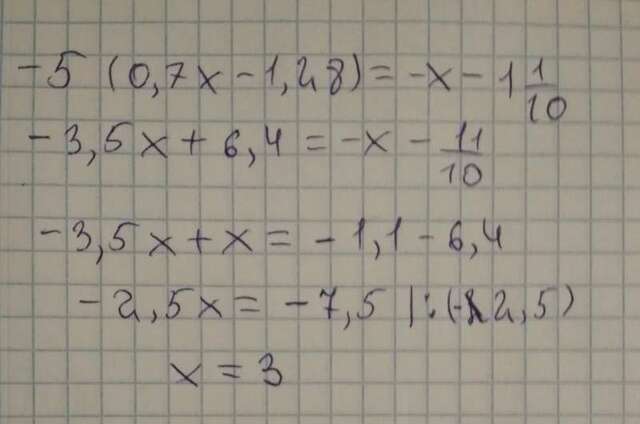 -5 (0,7x - 1,28) = -x - 1 1/10
-3,5x + 6,4 = -x - 11/10
-3,5x + x = -1,1 - 6,4
-2,5x = -7,5 |:(-2,5)
x = 3